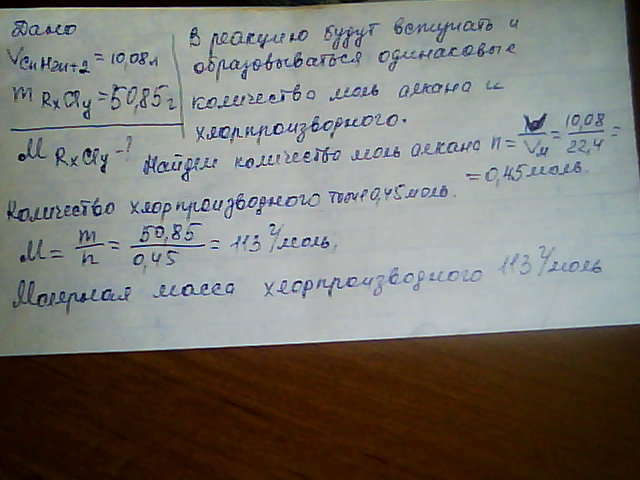 Дано
V CnH2n+2 = 10,08 л
m RxCly = 50,85 г
M RxCly - ?
В реакцию будут вступать и
образовываться одинаковые
количества моль алкана и
хлорпроизводного.
Найдем количество моль алкана n = V/Vм = 10,08/22,4 =
= 0,45 моль.
Количество хлорпроизводного тоже 0,45 моль.
M = m/n = 50,85/0,45 = 113 г/моль,
Молярная масса хлорпроизводного 113 г/моль